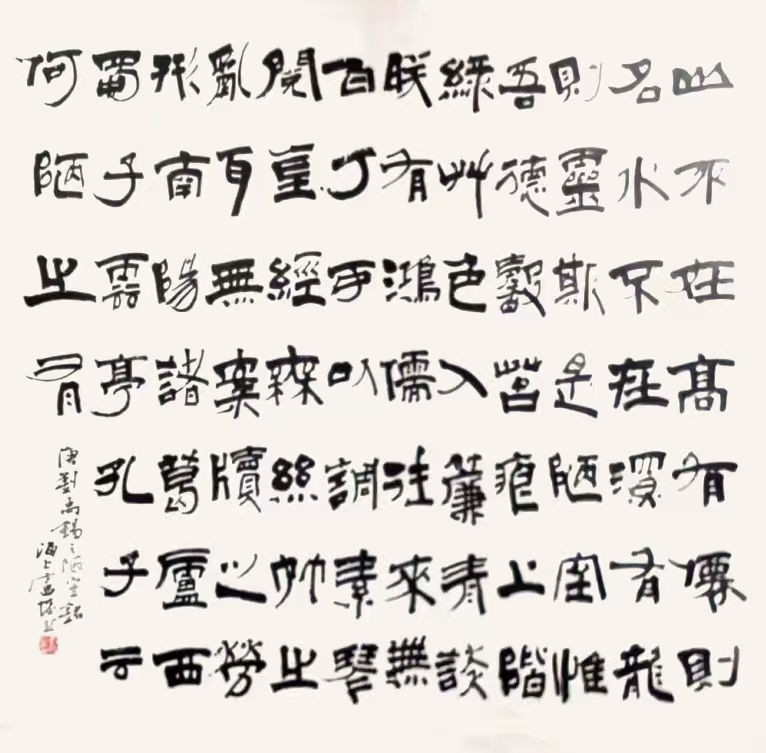 山不在高有僊則
名水不在深有龍
則靈斯是陋室惟
吾德馨苔痕上階
綠艸色入簾青談
咲有鴻儒往來無
白丁可以調素琴
閱金經無絲竹之
亂耳無案牘之勞
形南陽諸葛廬西
蜀子雲亭孔子云
何陋之有
唐劉禹錫之陋室銘
海上盧